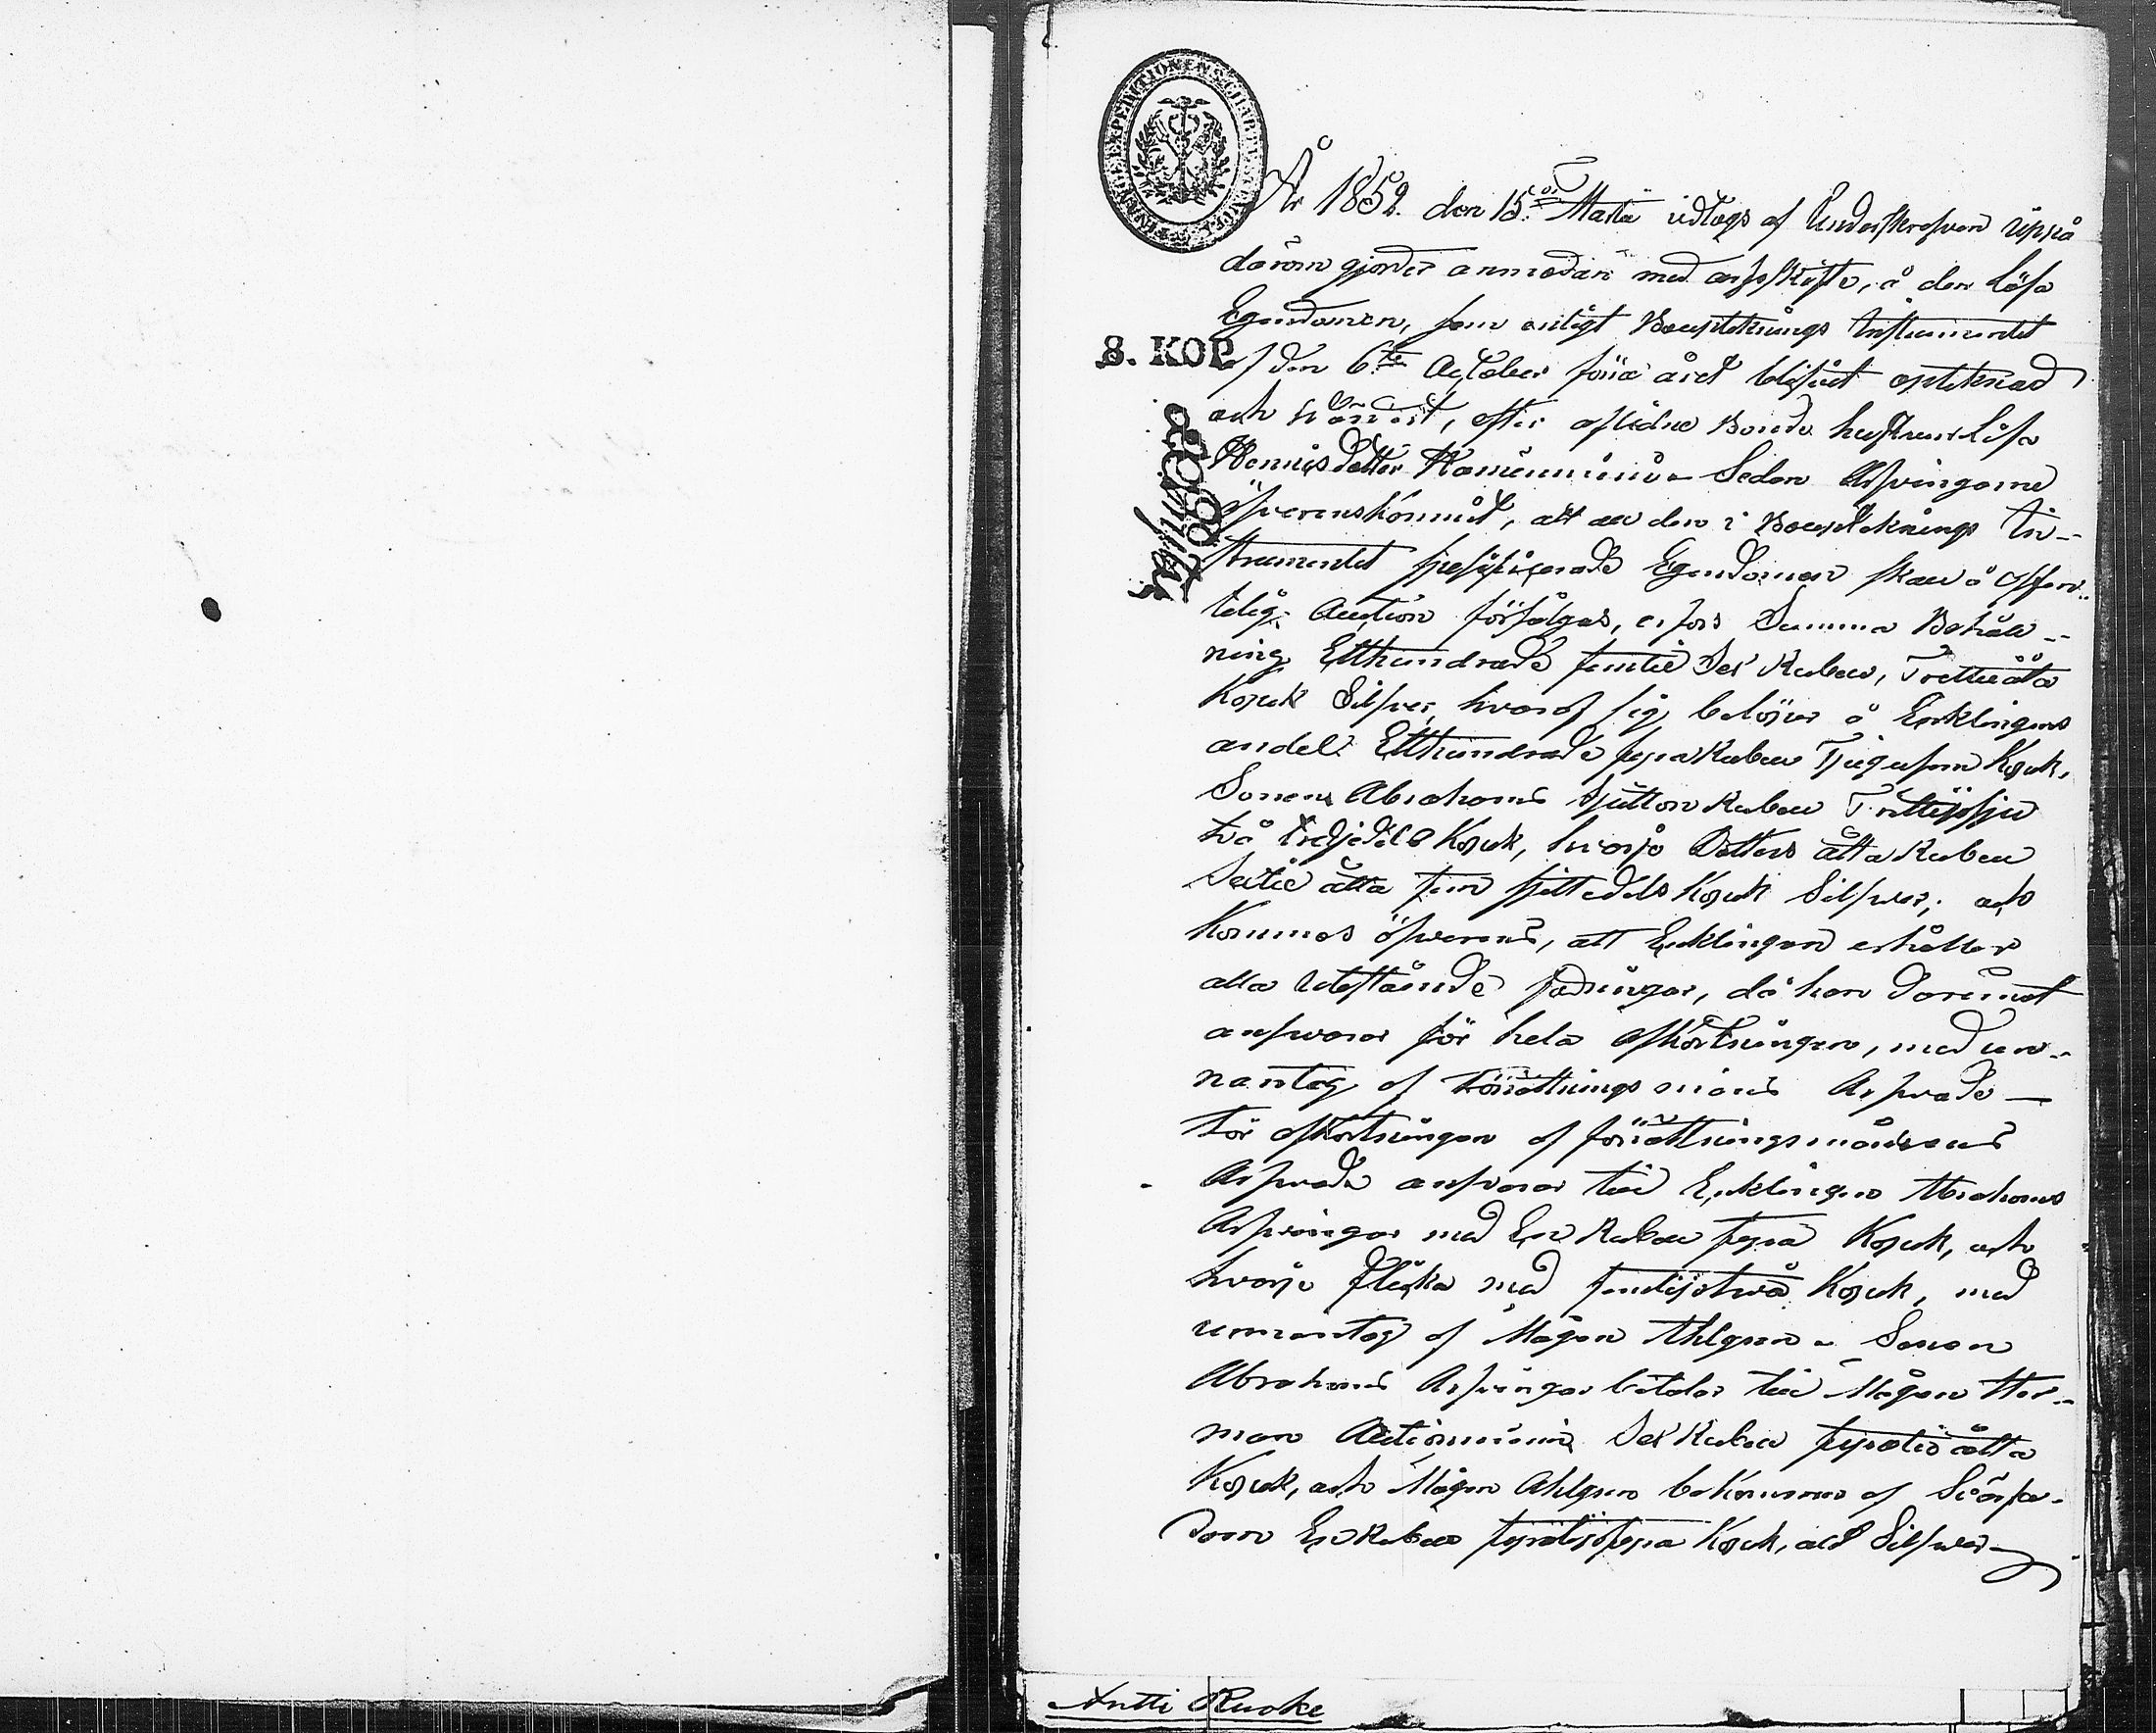 År 1852. den 15de Martii vidtogs af Underskrefven uppå
därom gjorder anmodan med arfsskifte, å den lösa
Egendomen, som enligt Boupteknings Instrumentet
8. KOP.
af den 6te October förra året blifvit opteknad
och värderat, efter aflidne Bonde hustrun Lisa
Hennis dotter - Sedan Arfvingarne
öfverenskommit, att all den i Bouptteknings In-
strumentet specificerade Egendomen skall å offen-
telig Auction försäljas, Summa Behåll-
ning Etthundrade femtie Sex Rubel, Trettieåtta
Kopek Silfver, hvaraf sig belöper å Enklingens
andel Etthundrade fyra Rubel Tjugufem Kopek,
Sonens Abrahams Sjutton Rubel Trettijosju
två tredjedels Kopek, hvarje Dotters åtta Rubel
Sextie åtta fem sjettedels Kopek Silfver; och
Kommes öfverens, att Enklingen erhåller
alla utestående fodringar, då han däremot
answarar för hela afkortningen, med un-
nantag af Förrättnings mäns Arfvode —
För afkortningen af förrättningsmännens
Arfvode answarar till Enklingen Abrahams
Arfvingar med En Rubel fyra Kopek, och
hvarje flicka med femtijotwå Kopek, med
unnantag af Mågen Ahlgren - Sonen
Abrahams Arfvingar betalar till Mågen Her-
man Sex Rubel fyratio åtta
Kopek, och Mågen Ahlgren bekommer af
dom En Rubel fyratijofyra Kopek, allt Silfver
Antti Ruoke